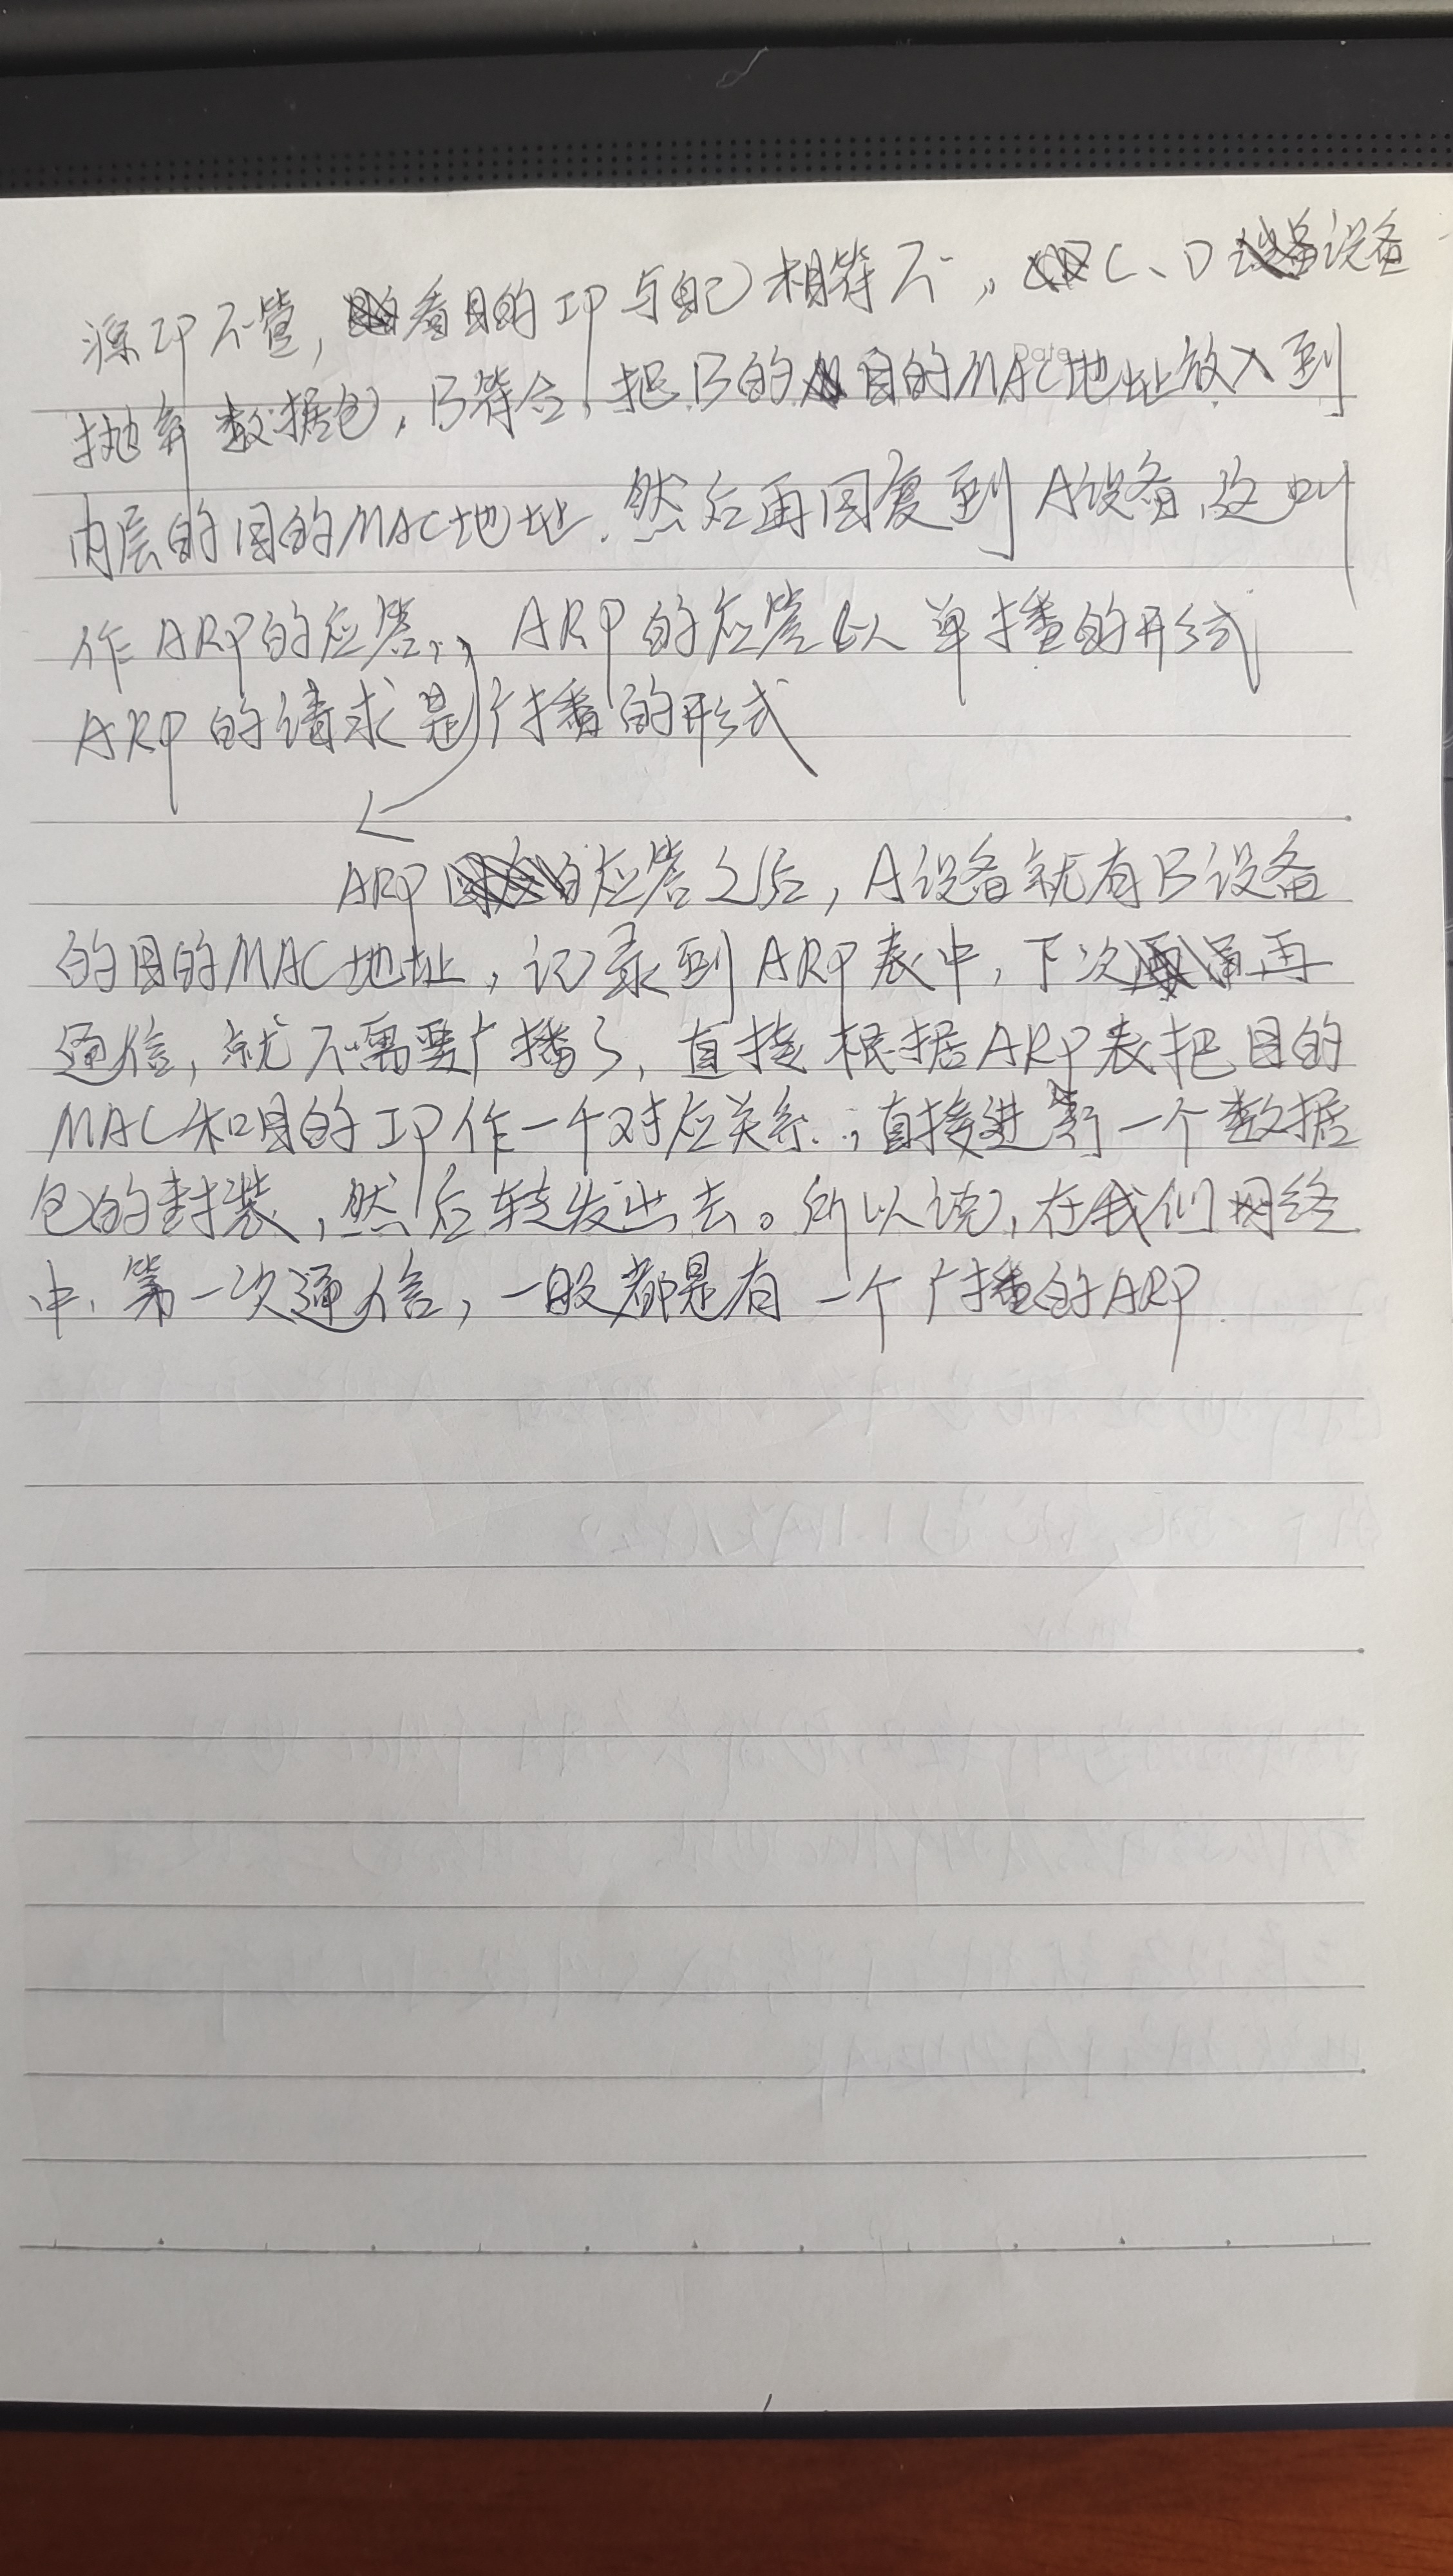 源IP不管,看目的IP与自己相等不,C、D设备
抛弃数据包,B符合,把B的目的MAC地址放入到
Date
内层的目的MAC地址.然后再回复到A设备,这叫
作ARP的应答,,ARP的应答以单播的形式
ARP的请求是广播的形式
ARP应答之后,A设备就有B设备
的目的MAC地址,记录到ARP表中,下次再
通信,就不需要广播了,直接根据ARP表把目的
MAC和目的IP作一个对应关系.;直接进行一个数据
包的封装,然后转发出去。所以说,在我们网络
中.第一次通信,一般都是有一个广播的ARP